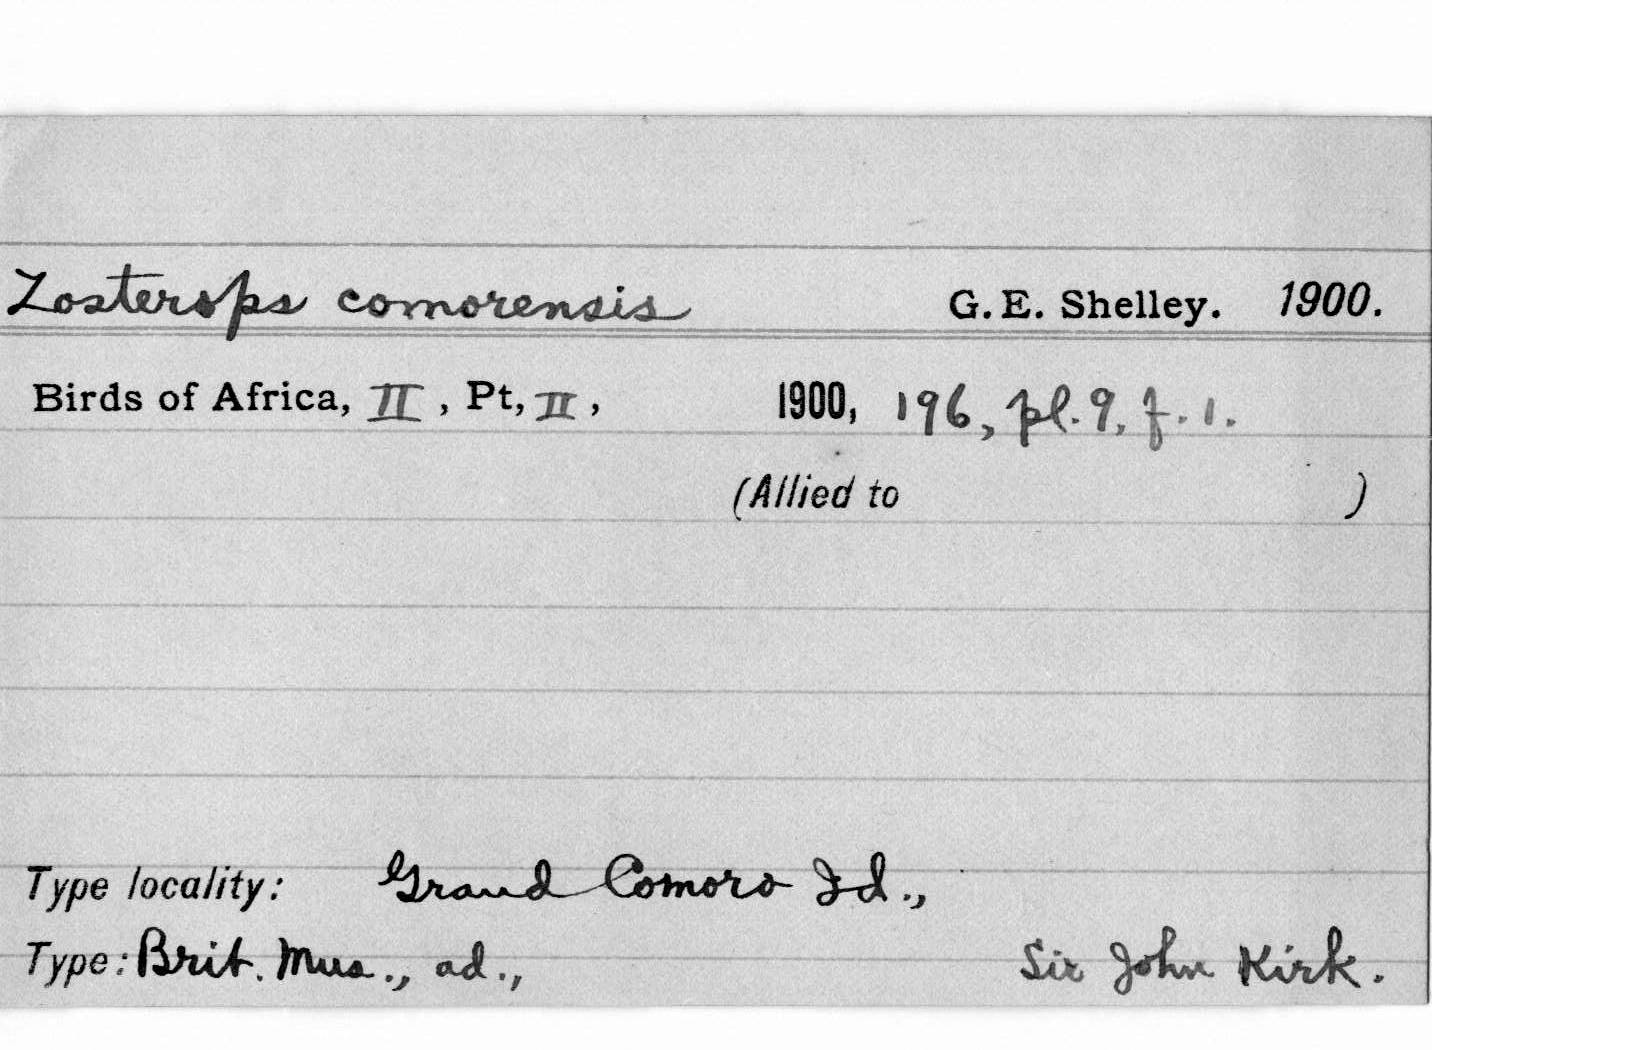 Zosterops comorensis G. E. Shelley. 1900.
Birds of Africa, II, Pt, II, 1900, 196, pl. 9, f. 1.
(Allied to )
Type locality: Grand Comoro Id.,
Type: Brit. Mus., ad., Sir John Kirk.